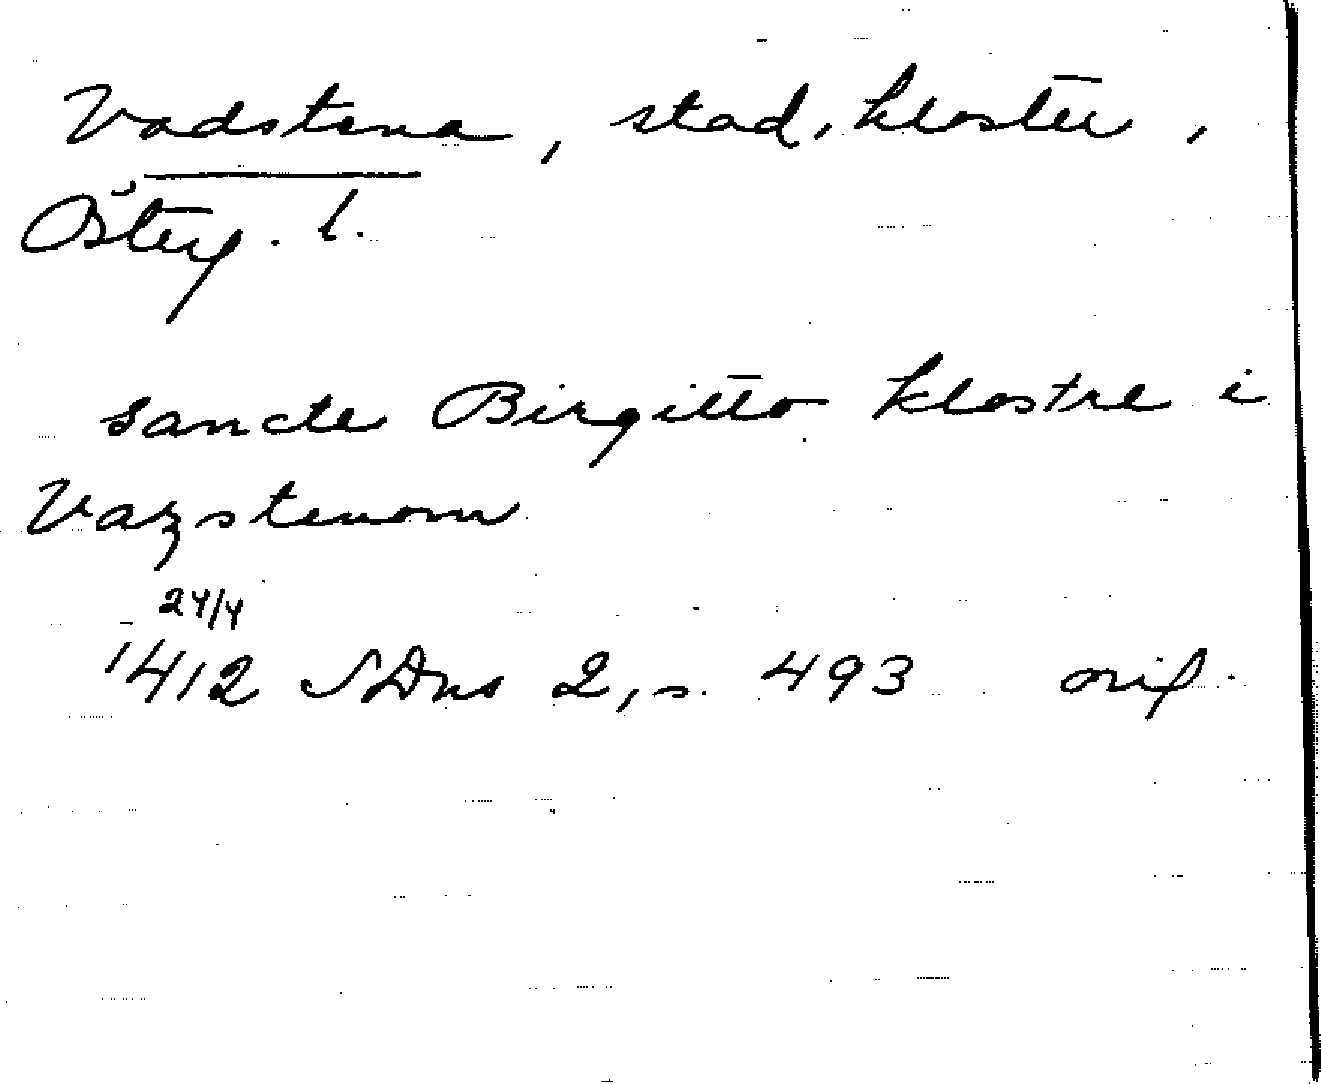 Vadstena, stad, kloster,
Österg. l.
sancte Birgitto klostre i
Vazstenom
24/4
1412 SDns 2, s. 493 orig.